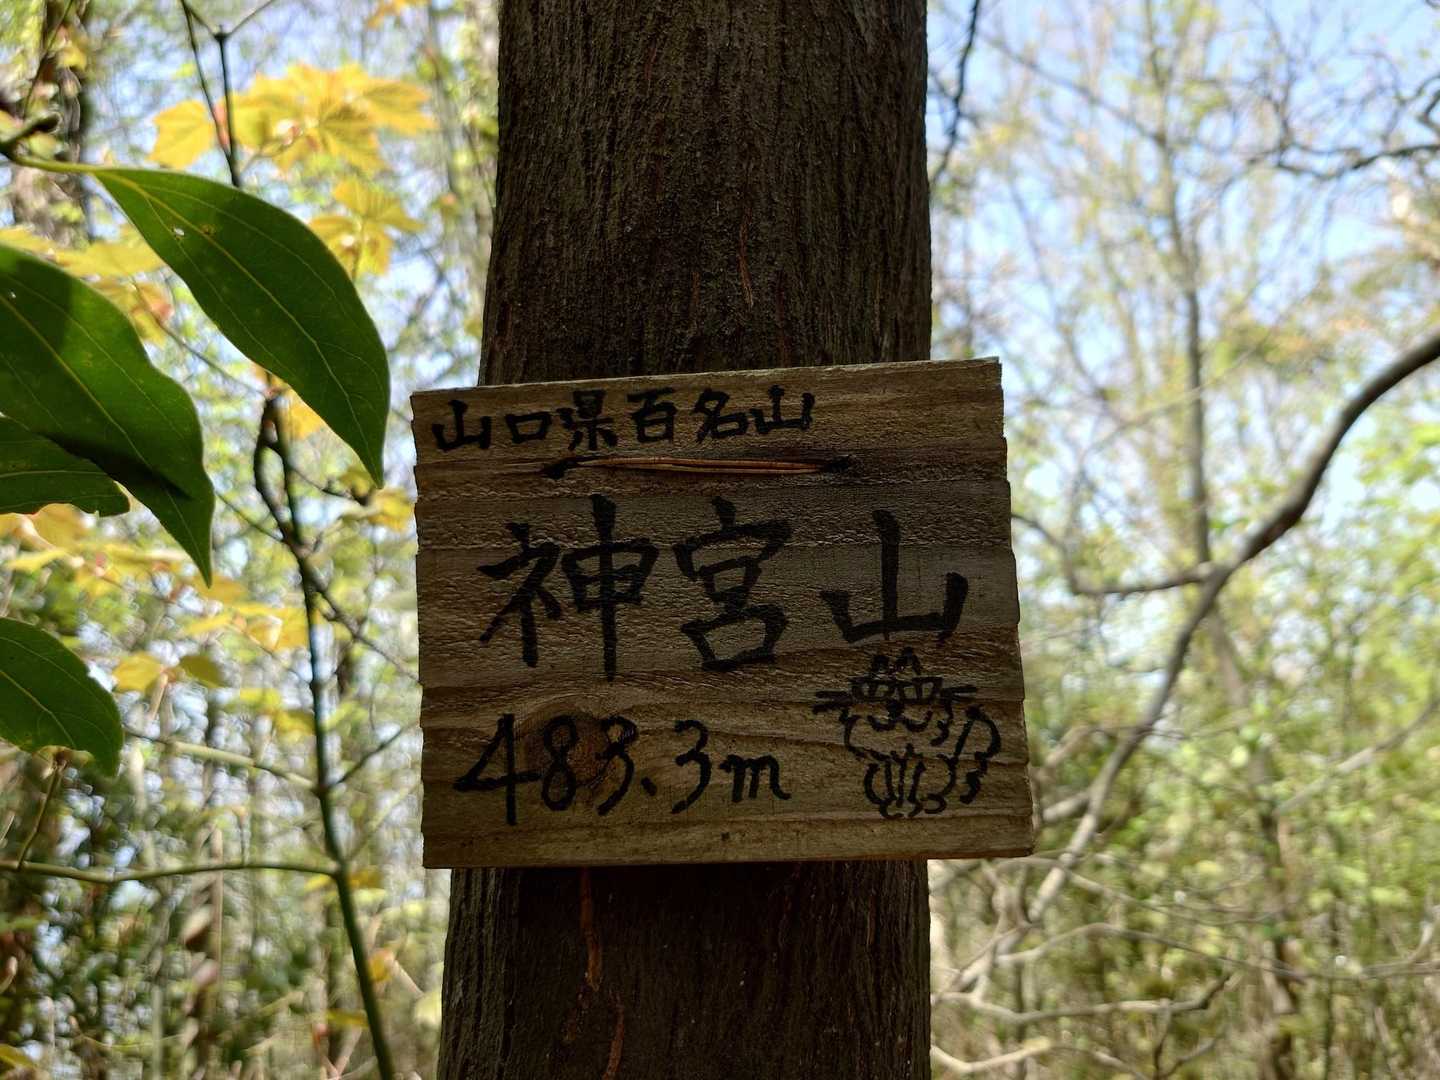 山口県百名山
神宮山
483.3m